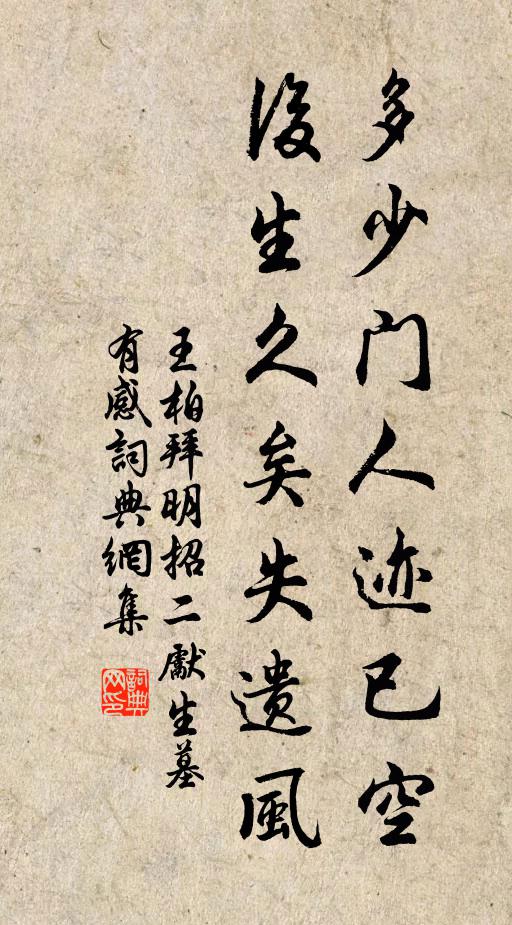 多少門人迹已空
後生久矣失遺風
王柏拜明招二獻生墓
有感詞典網集
詞典网印